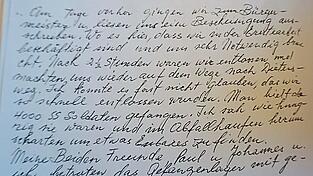 . Am Tage vorher gingen wir zum Bürger-
meister u. liesen uns eine Bescheinigung aus-
schreiben. Wo es hies, dass wir in der
beschäftigt sind und uns sehr Notwendig brau-
cht. Nach 2½ Stunden waren wir entlassen und
machten uns wieder auf dem Wege nach
weg. Ich konnte es fast nicht glauben, das wir
so schnell entlassen wurden. Man hielt da
4000 SS Soldaten gefangen. Ich sah wie hung-
rig sie waren und im Abfallhaufen herum
scharten um etwas Essbares zu finden.
Meine Beiden Freunde Paul u. Johannes u.
ich betraten das Gefangenlager mit ge-